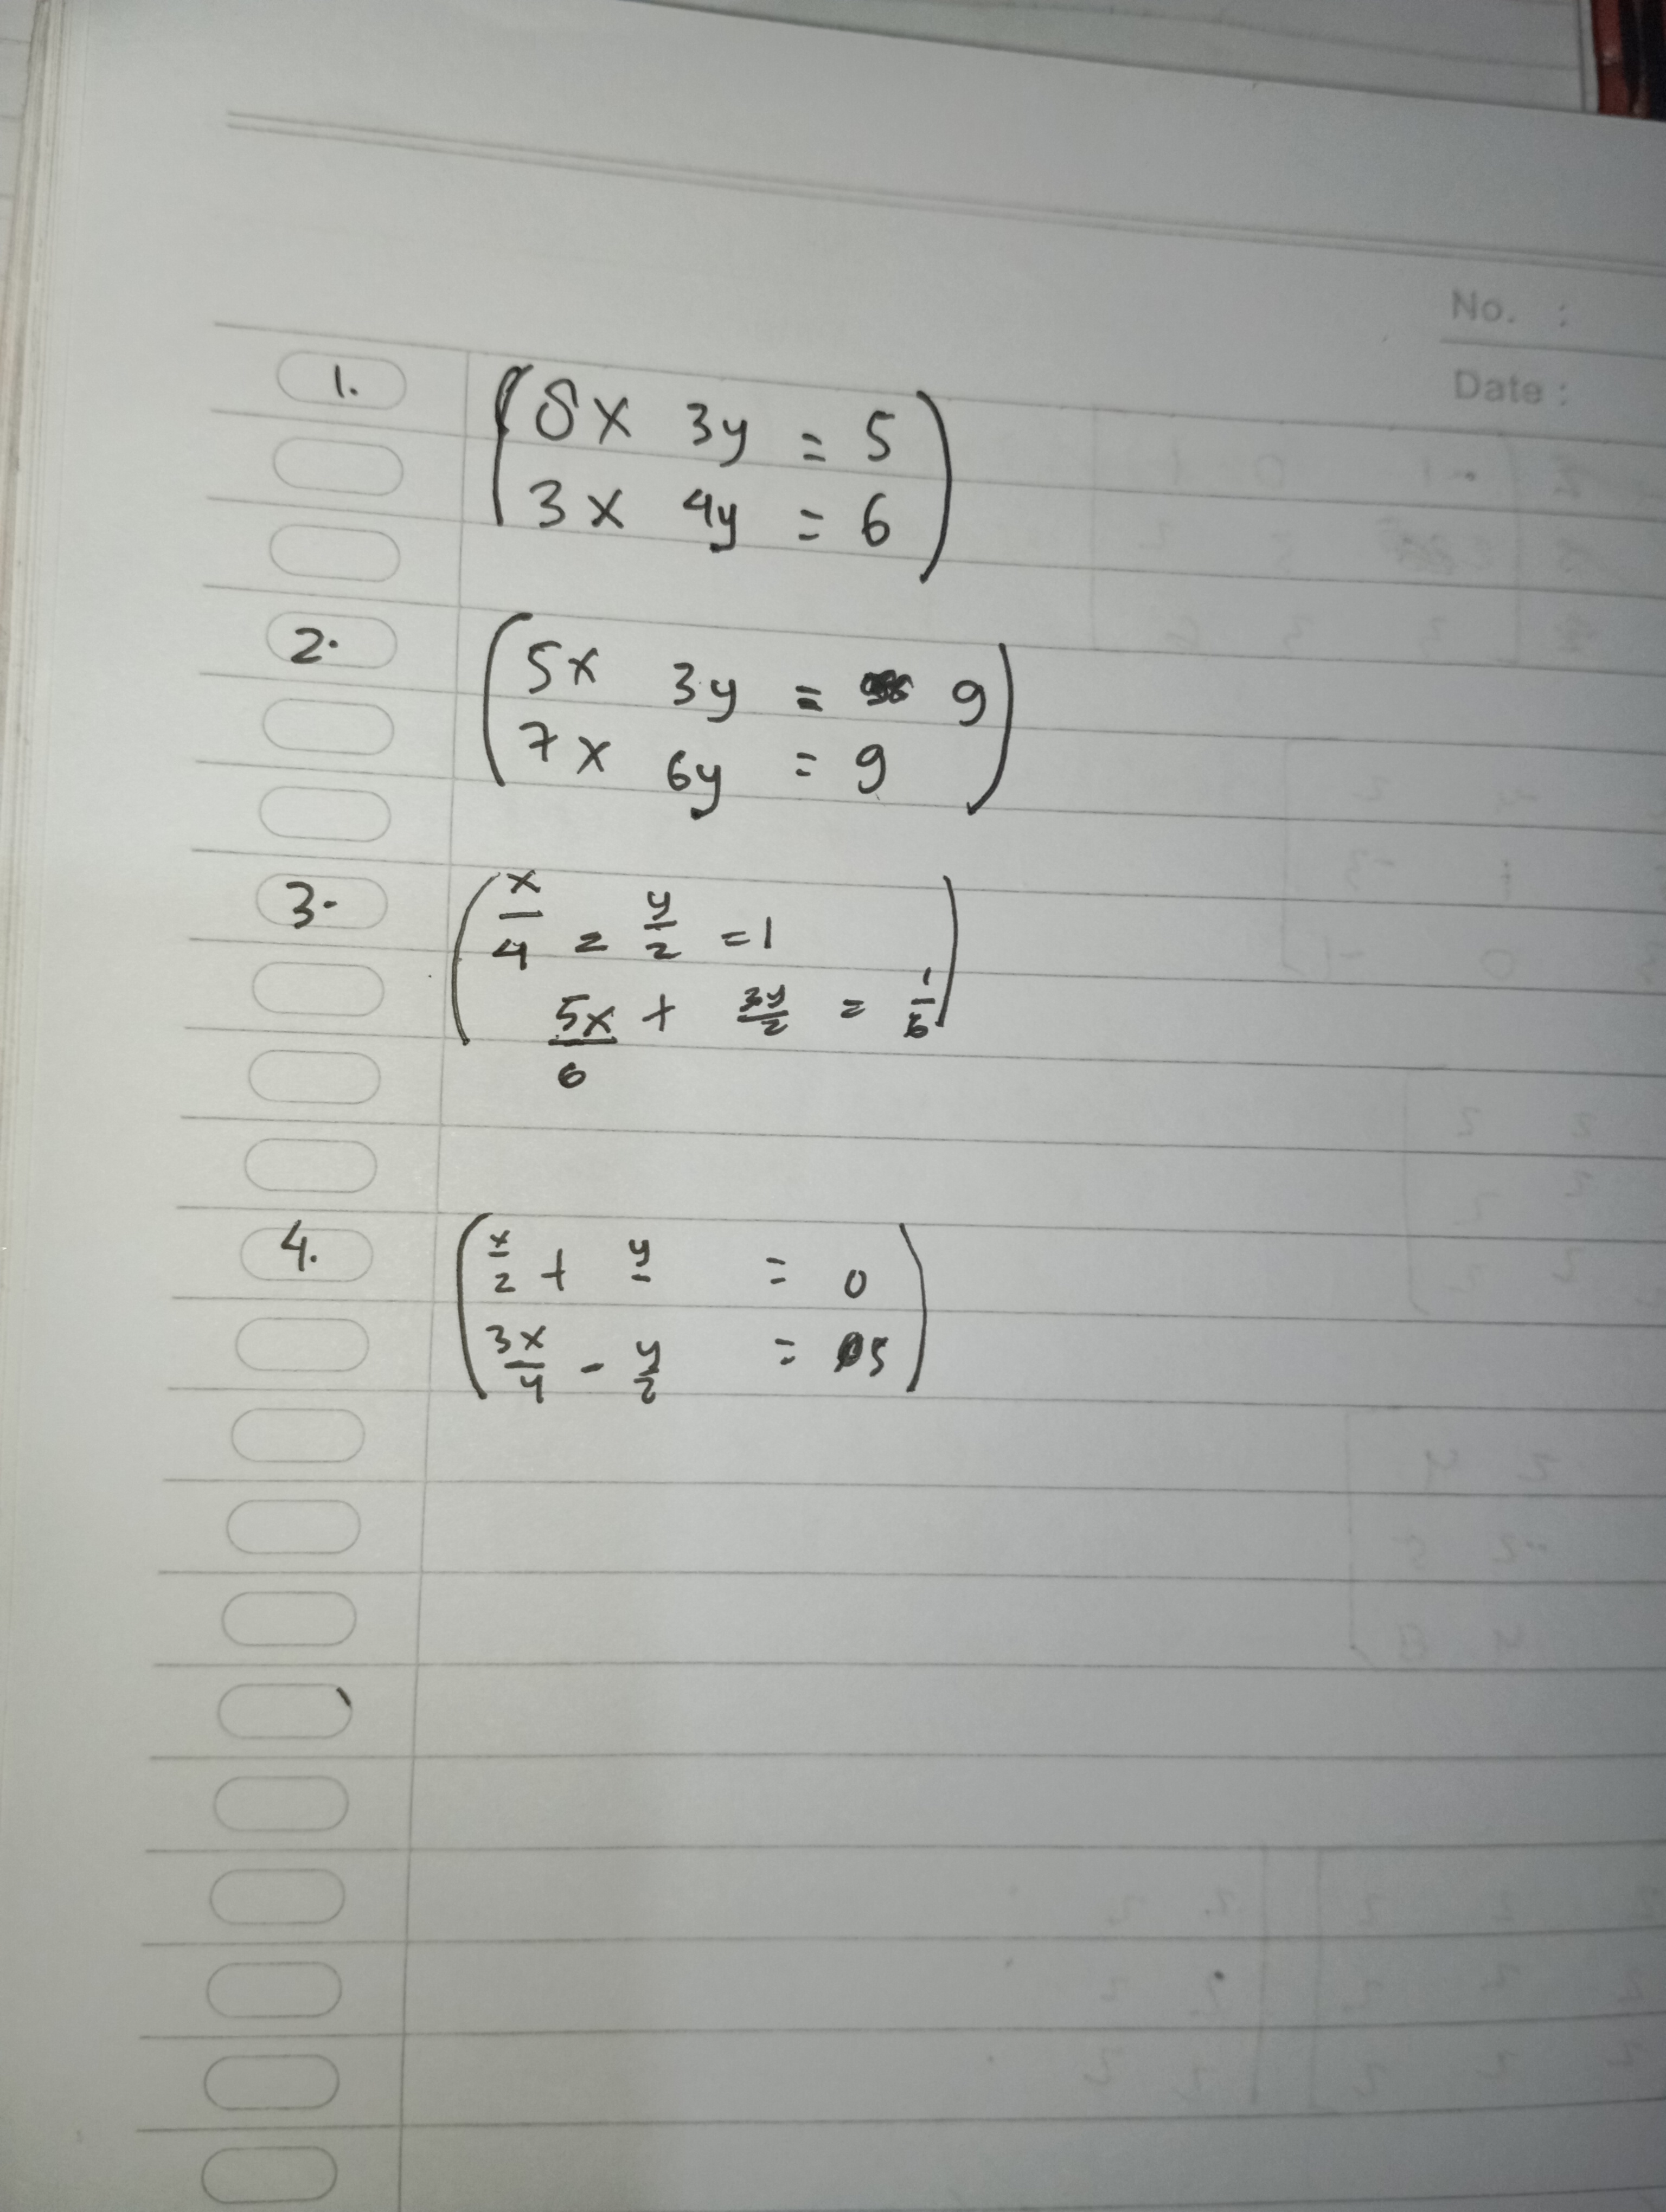 No. :
Date :
1. ( 8x 3y = 5
3x 4y = 6 )
2. ( 5x 3y = 9
7x 6y = 9 )
3. ( x/4 = y/2 = 1
5x/6 + 3y/2 = 1/6 )
4. ( x/2 + y = 0
3x/4 - y/2 = 5 )